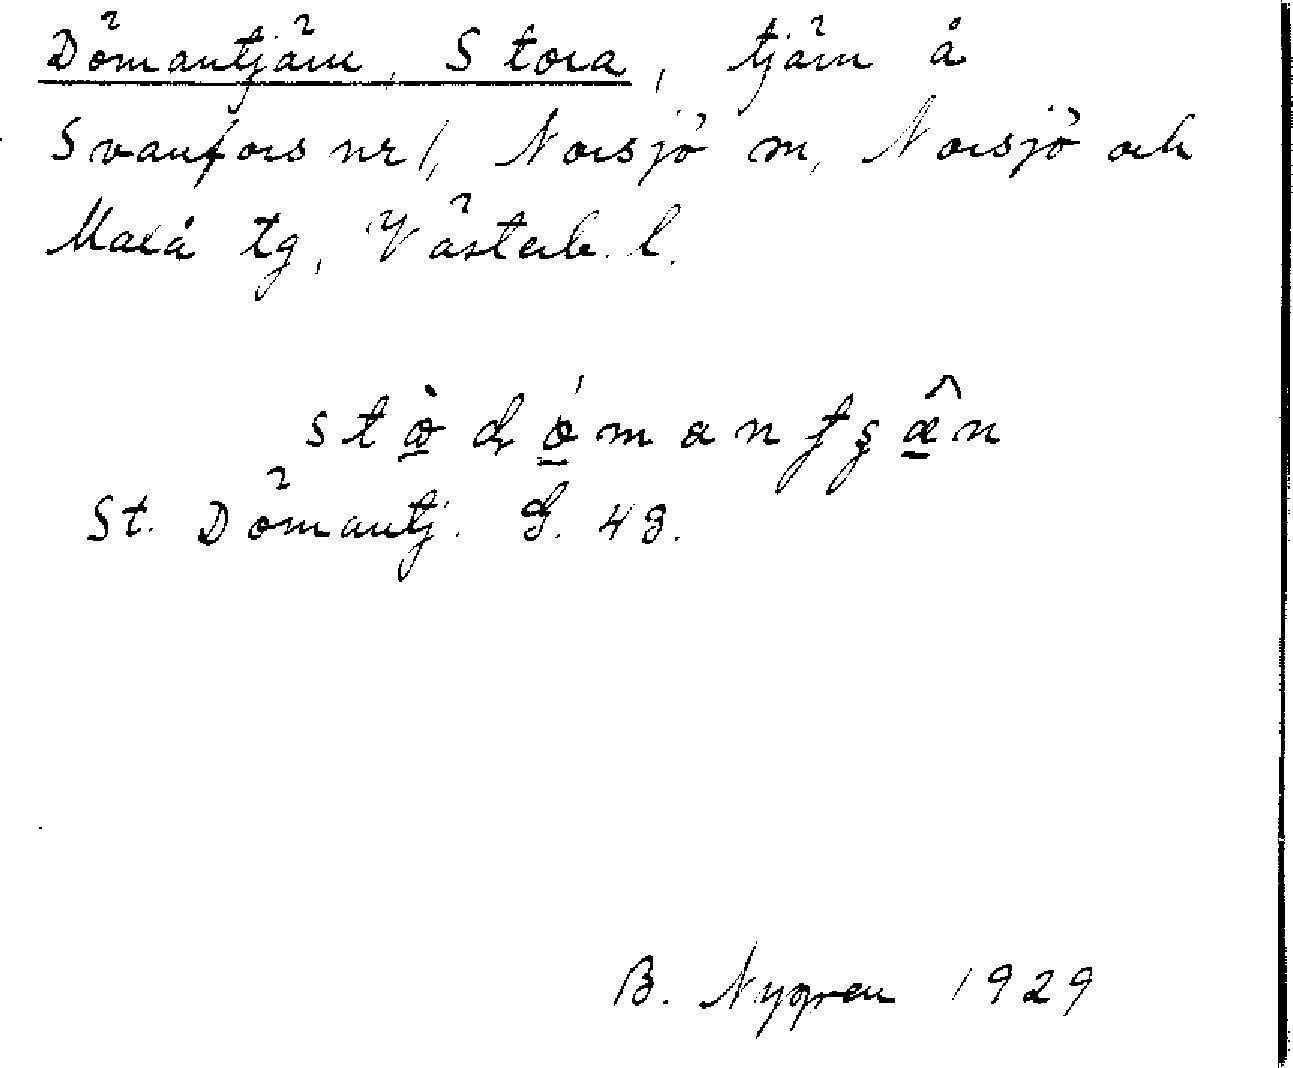 Dömantjärn, Stora, tjärn å
Svanfors nr 1, Norsjö sn, Norsjö och
Malå tg, Västerb. l.
St. Dömantj. G. 48.
B. Nygren 1929